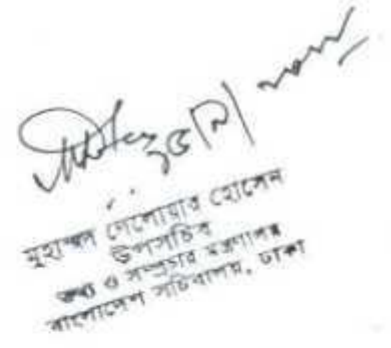 মুহাম্মদ দেলোয়ার হোসেন
উপসচিব
তথ্য ও সম্প্রচার মন্ত্রণালয়
বাংলাদেশ সচিবালয়, ঢাকা